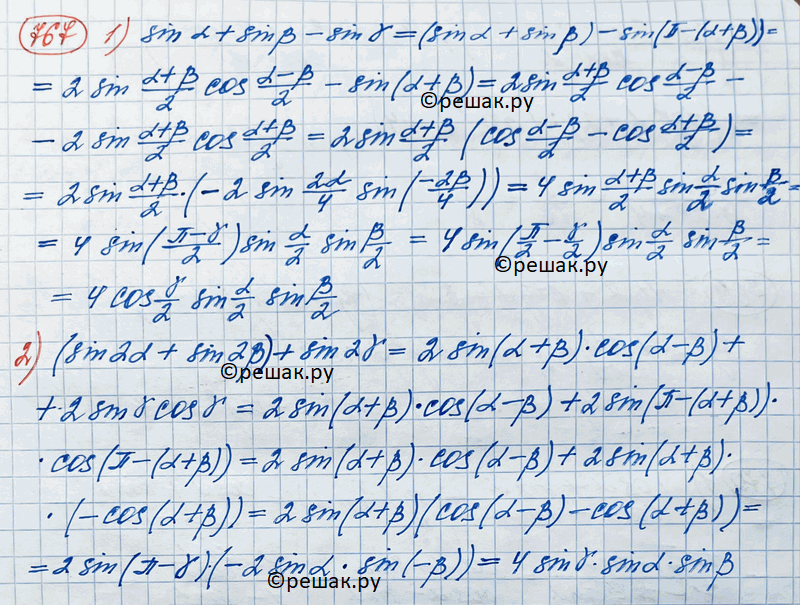 767 1) sin α + sin β − sin γ = (sin α + sin β) − sin(π−(α+β)) =
= 2 sin (α+β)/2 cos (α−β)/2 − sin(α+β) = 2 sin (α+β)/2 cos (α−β)/2 −
©решак.ру
− 2 sin (α+β)/2 cos (α+β)/2 = 2 sin (α+β)/2 (cos (α−β)/2 − cos (α+β)/2) =
= 2 sin (α+β)/2 · (−2 sin 2α/4 sin(−2β/4)) = 4 sin (α+β)/2 sin α/2 sin β/2 =
= 4 sin((π−γ)/2) sin α/2 sin β/2 = 4 sin(π/2 − γ/2) sin α/2 sin β/2 =
©решак.ру
= 4 cos γ/2 sin α/2 sin β/2
2) (sin 2α + sin 2β) + sin 2γ = 2 sin(α+β) · cos(α−β) +
©решак.ру
+ 2 sin γ cos γ = 2 sin(α+β) · cos(α−β) + 2 sin(π−(α+β)) ·
· cos(π−(α+β)) = 2 sin(α+β) · cos(α−β) + 2 sin(α+β) ·
· (−cos(α+β)) = 2 sin(α+β)(cos(α−β) − cos(α+β)) =
= 2 sin(π−γ) · (−2 sin α · sin(−β)) = 4 sin γ · sin α · sin β
©решак.ру